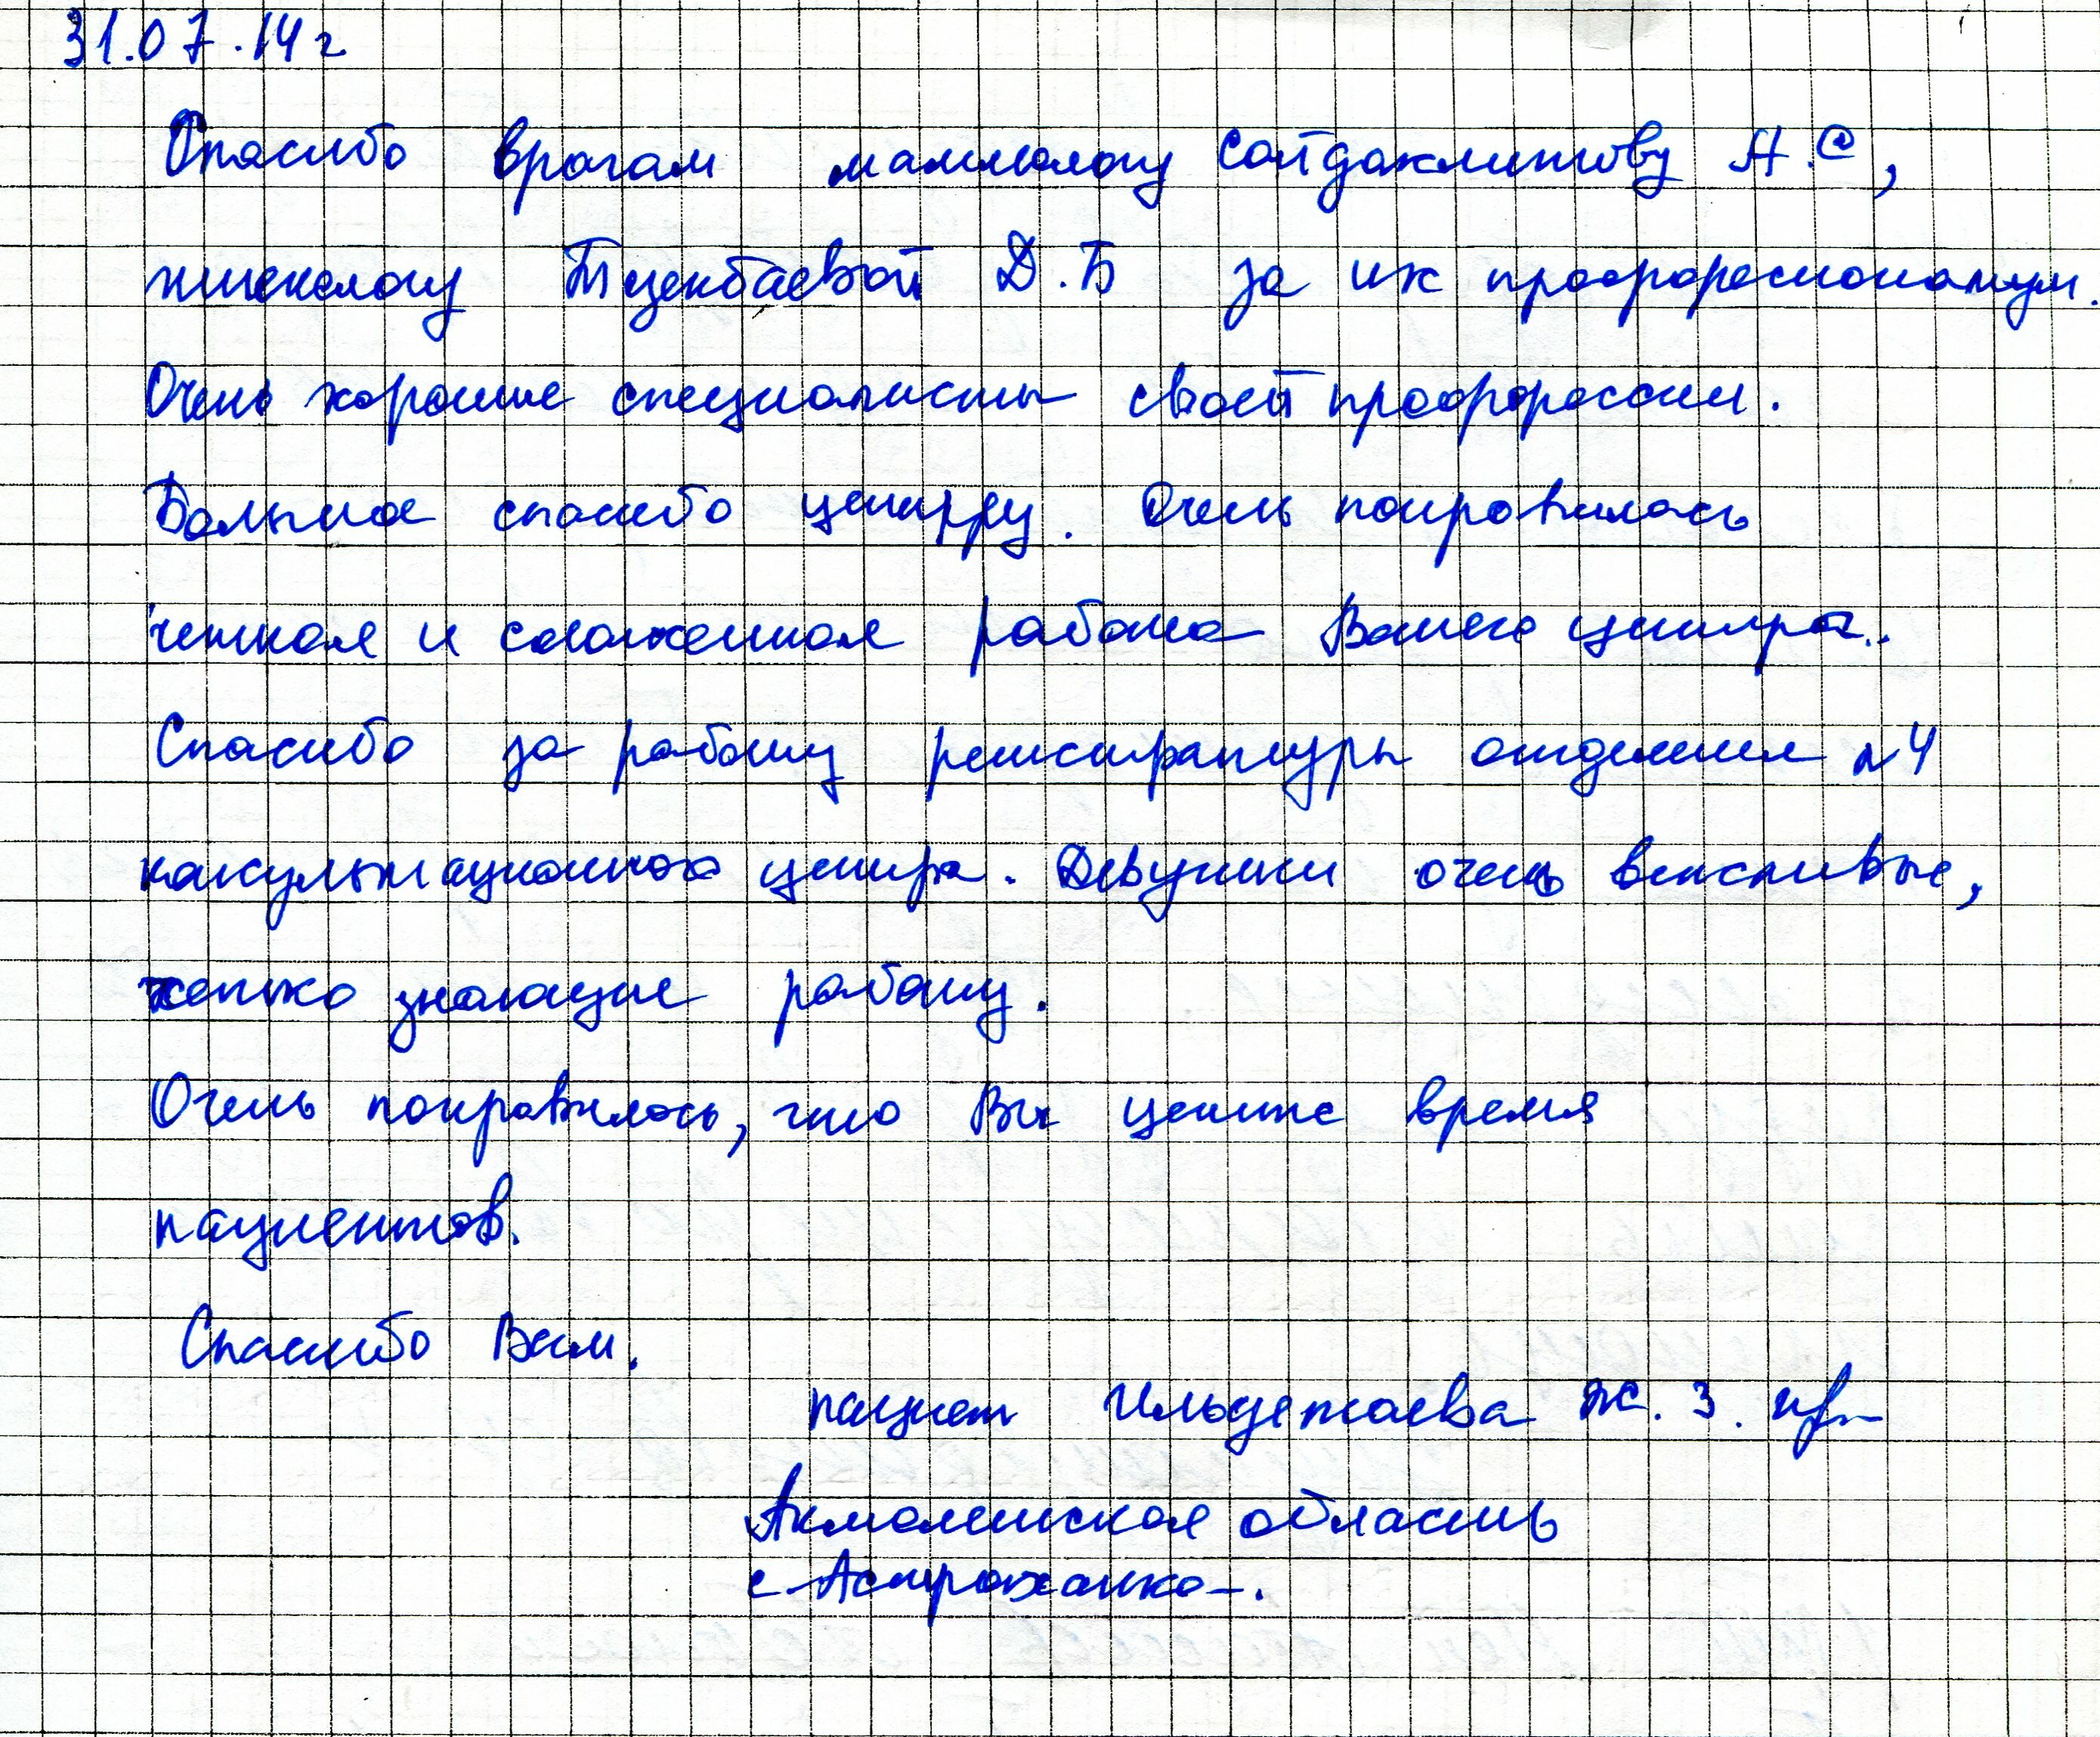 31.07.14г
Спасибо врачам маммологу Сайдахметову А.С,
гинекологу Тщекбаевой Д.Б за их профессионализм.
Очень хорошие специалисты своей профессии.
Большое спасибо центру. Очень понравилась
четкая и слаженная работа Вашего центра..
Спасибо за работу регистратуры отделения №4
консультационного центра. Девушки очень вежливые,
четко знающие работу.
Очень понравилось, что Вы цените время
пациентов.
Спасибо Вам.
пациент Ильдежаева Ж. З.
Акмолинская область
с-Астраханка-.